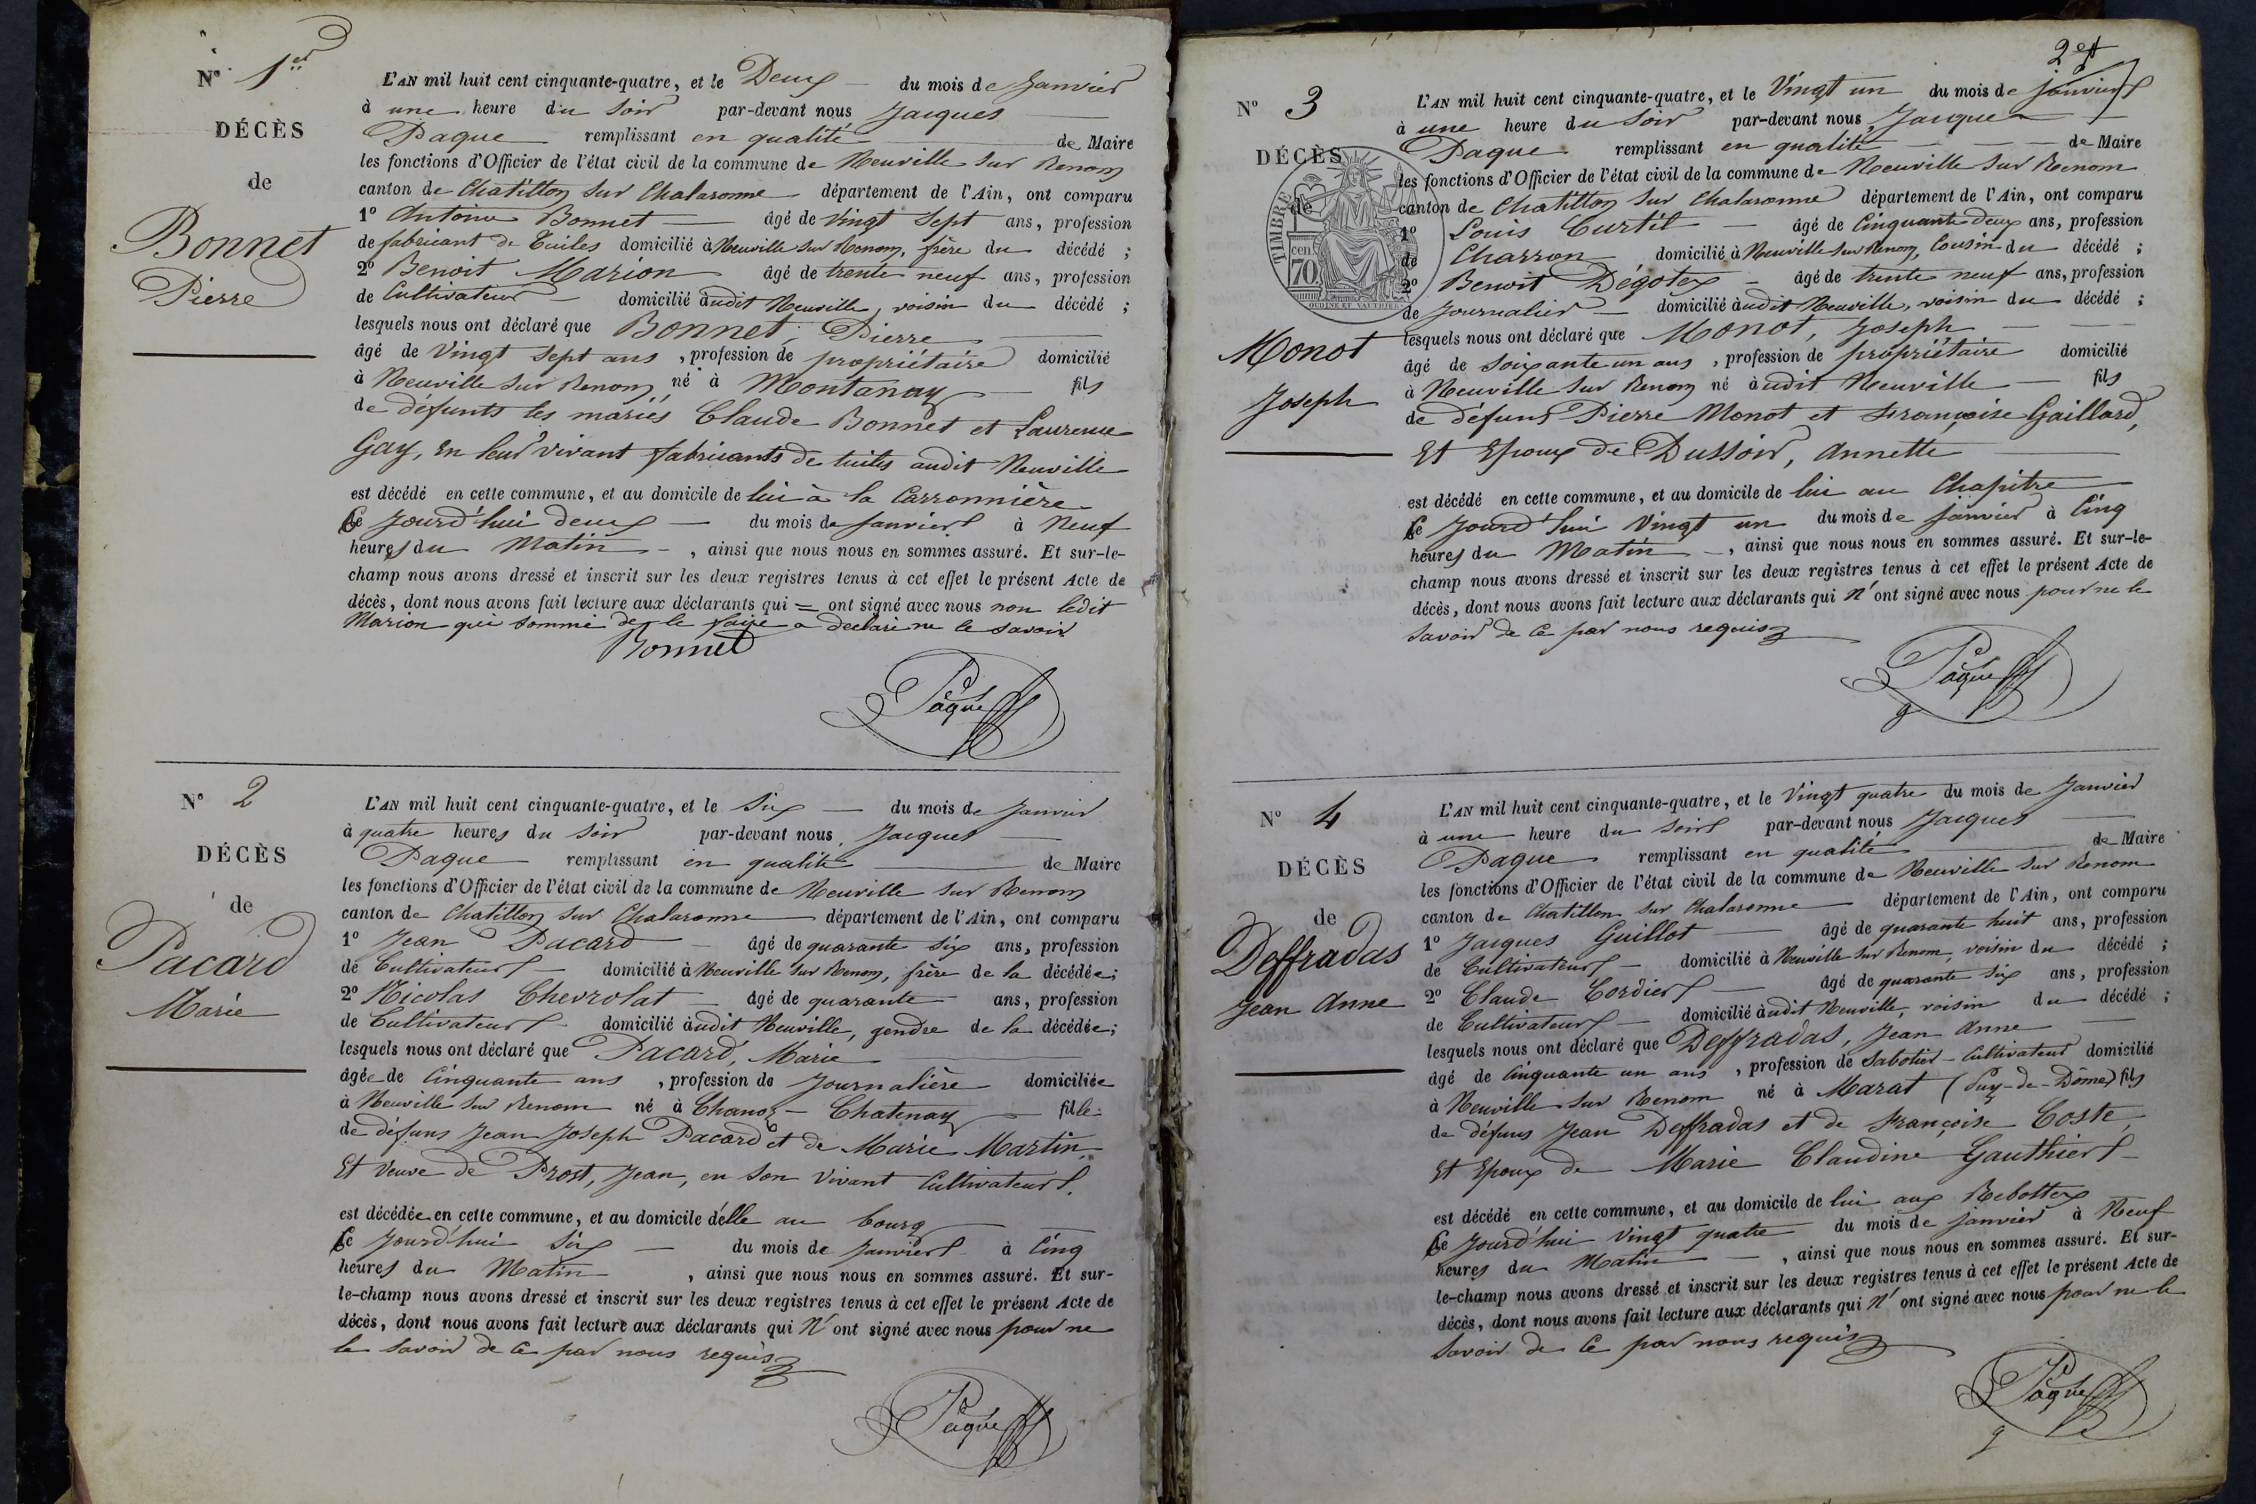 Nº 1er
DÉCÈS
de
Bonnet
Pierre
L'AN mil huit cent cinquante-quatre, et le Deux du mois de Janvier
à une heure du Soir par-devant nous Jacques
Paque remplissant en qualité de Maire
les fonctions d'Officier de l'état civil de la commune de Neuville sur Renom
canton de Chatillon sur Chalaronne département de l'Ain, ont comparu
1º Antoine Bonnet âgé de Vingt Sept ans, profession
de fabricant de Tuiles domicilié à Neuville sur Renom, frère du décédé ;
2º Benoit Marion âgé de trente neuf ans, profession
de Cultivateur domicilié audit Neuville, voisin du décédé ;
lesquels nous ont déclaré que Bonnet, Pierre
âgé de Vingt Sept ans, profession de propriétaire domicilié
à Neuville sur Renom, né à Montanay fils
de défunts les mariés Claude Bonnet et Laurence
Gay, en leur vivant fabricants de tuiles audit Neuville
est décédé en cette commune, et au domicile de lui à la Carronnière
Ce Jourd'hui deux du mois de Janvier à Neuf
heures du Matin, ainsi que nous nous en sommes assuré. Et sur-le-
champ nous avons dressé et inscrit sur les deux registres tenus à cet effet le présent Acte de
décès, dont nous avons fait lecture aux déclarants qui = ont signé avec nous non ledit
Marion qui sommé de le faire a déclaré ne le savoir
Bonnet
Paque
Nº 2
DÉCÈS
de
Pacard
Marie
L'AN mil huit cent cinquante-quatre, et le Six du mois de Janvier
à quatre heures du Soir par-devant nous, Jacques
Paque remplissant en qualité de Maire
les fonctions d'Officier de l'état civil de la commune de Neuville sur Renom
canton de Chatillon sur Chalaronne département de l'Ain, ont comparu
1º Jean Pacard âgé de quarante six ans, profession
de Cultivateur domicilié à Neuville sur Renom, frère de la décédée;
2º Nicolas Chevrolat âgé de quarante ans, profession
de Cultivateur domicilié audit Neuville, gendre de la décédée;
lesquels nous ont déclaré que Pacard, Marie
âgée de Cinquante ans, profession de Journalière domiciliée
à Neuville sur Renom né à Chanoz-Chatenay fille
de défuns Jean Joseph Pacard et de Marie Martin,
Et Veuve de Prost, Jean, en son vivant Cultivateur.
est décédée en cette commune, et au domicile d'elle au bourg
Ce Jourd'hui Six du mois de Janvier à Cinq
heures du Matin, ainsi que nous nous en sommes assuré. Et sur-
le-champ nous avons dressé et inscrit sur les deux registres tenus à cet effet le présent Acte de
décès, dont nous avons fait lecture aux déclarants qui N'ont signé avec nous pour ne
le savoir de Ce par nous requis
Paque
Nº 3
DÉCÈS
de
Monot
Joseph
TIMBRE
70 cen
OUDINÉ ET VAUTHIER
L'AN mil huit cent cinquante-quatre, et le Vingt un du mois de Janvier
à une heure du Soir par-devant nous, Jacques
Paque remplissant en qualité de Maire
les fonctions d'Officier de l'état civil de la commune de Neuville sur Renom
canton de Chatillon sur Chalaronne département de l'Ain, ont comparu
1º Louis Curtil âgé de Cinquante deux ans, profession
de Charron domicilié à Neuville sur Renom, Cousin du décédé ;
2º Benoit Dégotex âgé de trente neuf ans, profession
de Journalier domicilié audit Neuville, voisin du décédé ;
lesquels nous ont déclaré que Monot, Joseph
âgé de Soixante un ans, profession de propriétaire domicilié
à Neuville sur Renom né audit Neuville fils
de défuns Pierre Monot et Françoise Gaillard,
Et Epoux de Dussoir, Annette
est décédé en cette commune, et au domicile de lui au Chapitre
Ce Jourd'hui Vingt un du mois de Janvier à Cinq
heures du Matin, ainsi que nous nous en sommes assuré. Et sur-le-
champ nous avons dressé et inscrit sur les deux registres tenus à cet effet le présent Acte de
décès, dont nous avons fait lecture aux déclarants qui N'ont signé avec nous pour ne le
Savoir de Ce par nous requis
Paque
Nº 4
DÉCÈS
de
Deffradas
Jean Anne
L'AN mil huit cent cinquante-quatre, et le Vingt quatre du mois de Janvier
à une heure du Soir par-devant nous Jacques
Paque remplissant en qualité de Maire
les fonctions d'Officier de l'état civil de la commune de Neuville sur Renom
canton de Chatillon sur Chalaronne département de l'Ain, ont comparu
1º Jacques Guillot âgé de quarante huit ans, profession
de Cultivateur domicilié à Neuville sur Renom, voisin du décédé ;
2º Claude Cordier âgé de quarante six ans, profession
de Cultivateur domicilié audit Neuville, voisin du décédé ;
lesquels nous ont déclaré que Deffradas, Jean Anne
âgé de Cinquante un ans, profession de Sabotier-Cultivateur domicilié
à Neuville sur Renom né à Marat (Puy-de-Dôme) fils
de défuns Jean Deffradas et de Françoise Coste,
Et Epoux de Marie Claudine Gauthier
est décédé en cette commune, et au domicile de lui aux Rebottex
Ce Jourd'hui Vingt quatre du mois de Janvier à Neuf
heures du Matin, ainsi que nous nous en sommes assuré. Et sur-
le-champ nous avons dressé et inscrit sur les deux registres tenus à cet effet le présent Acte de
décès, dont nous avons fait lecture aux déclarants qui N'ont signé avec nous pour ne le
Savoir de Ce par nous requis
Paque